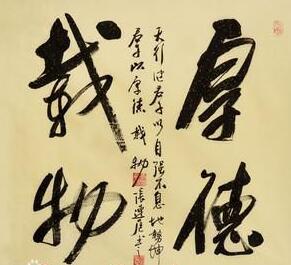 厚德
载物
天行健君子以自强不息地势坤
君子以厚德载物